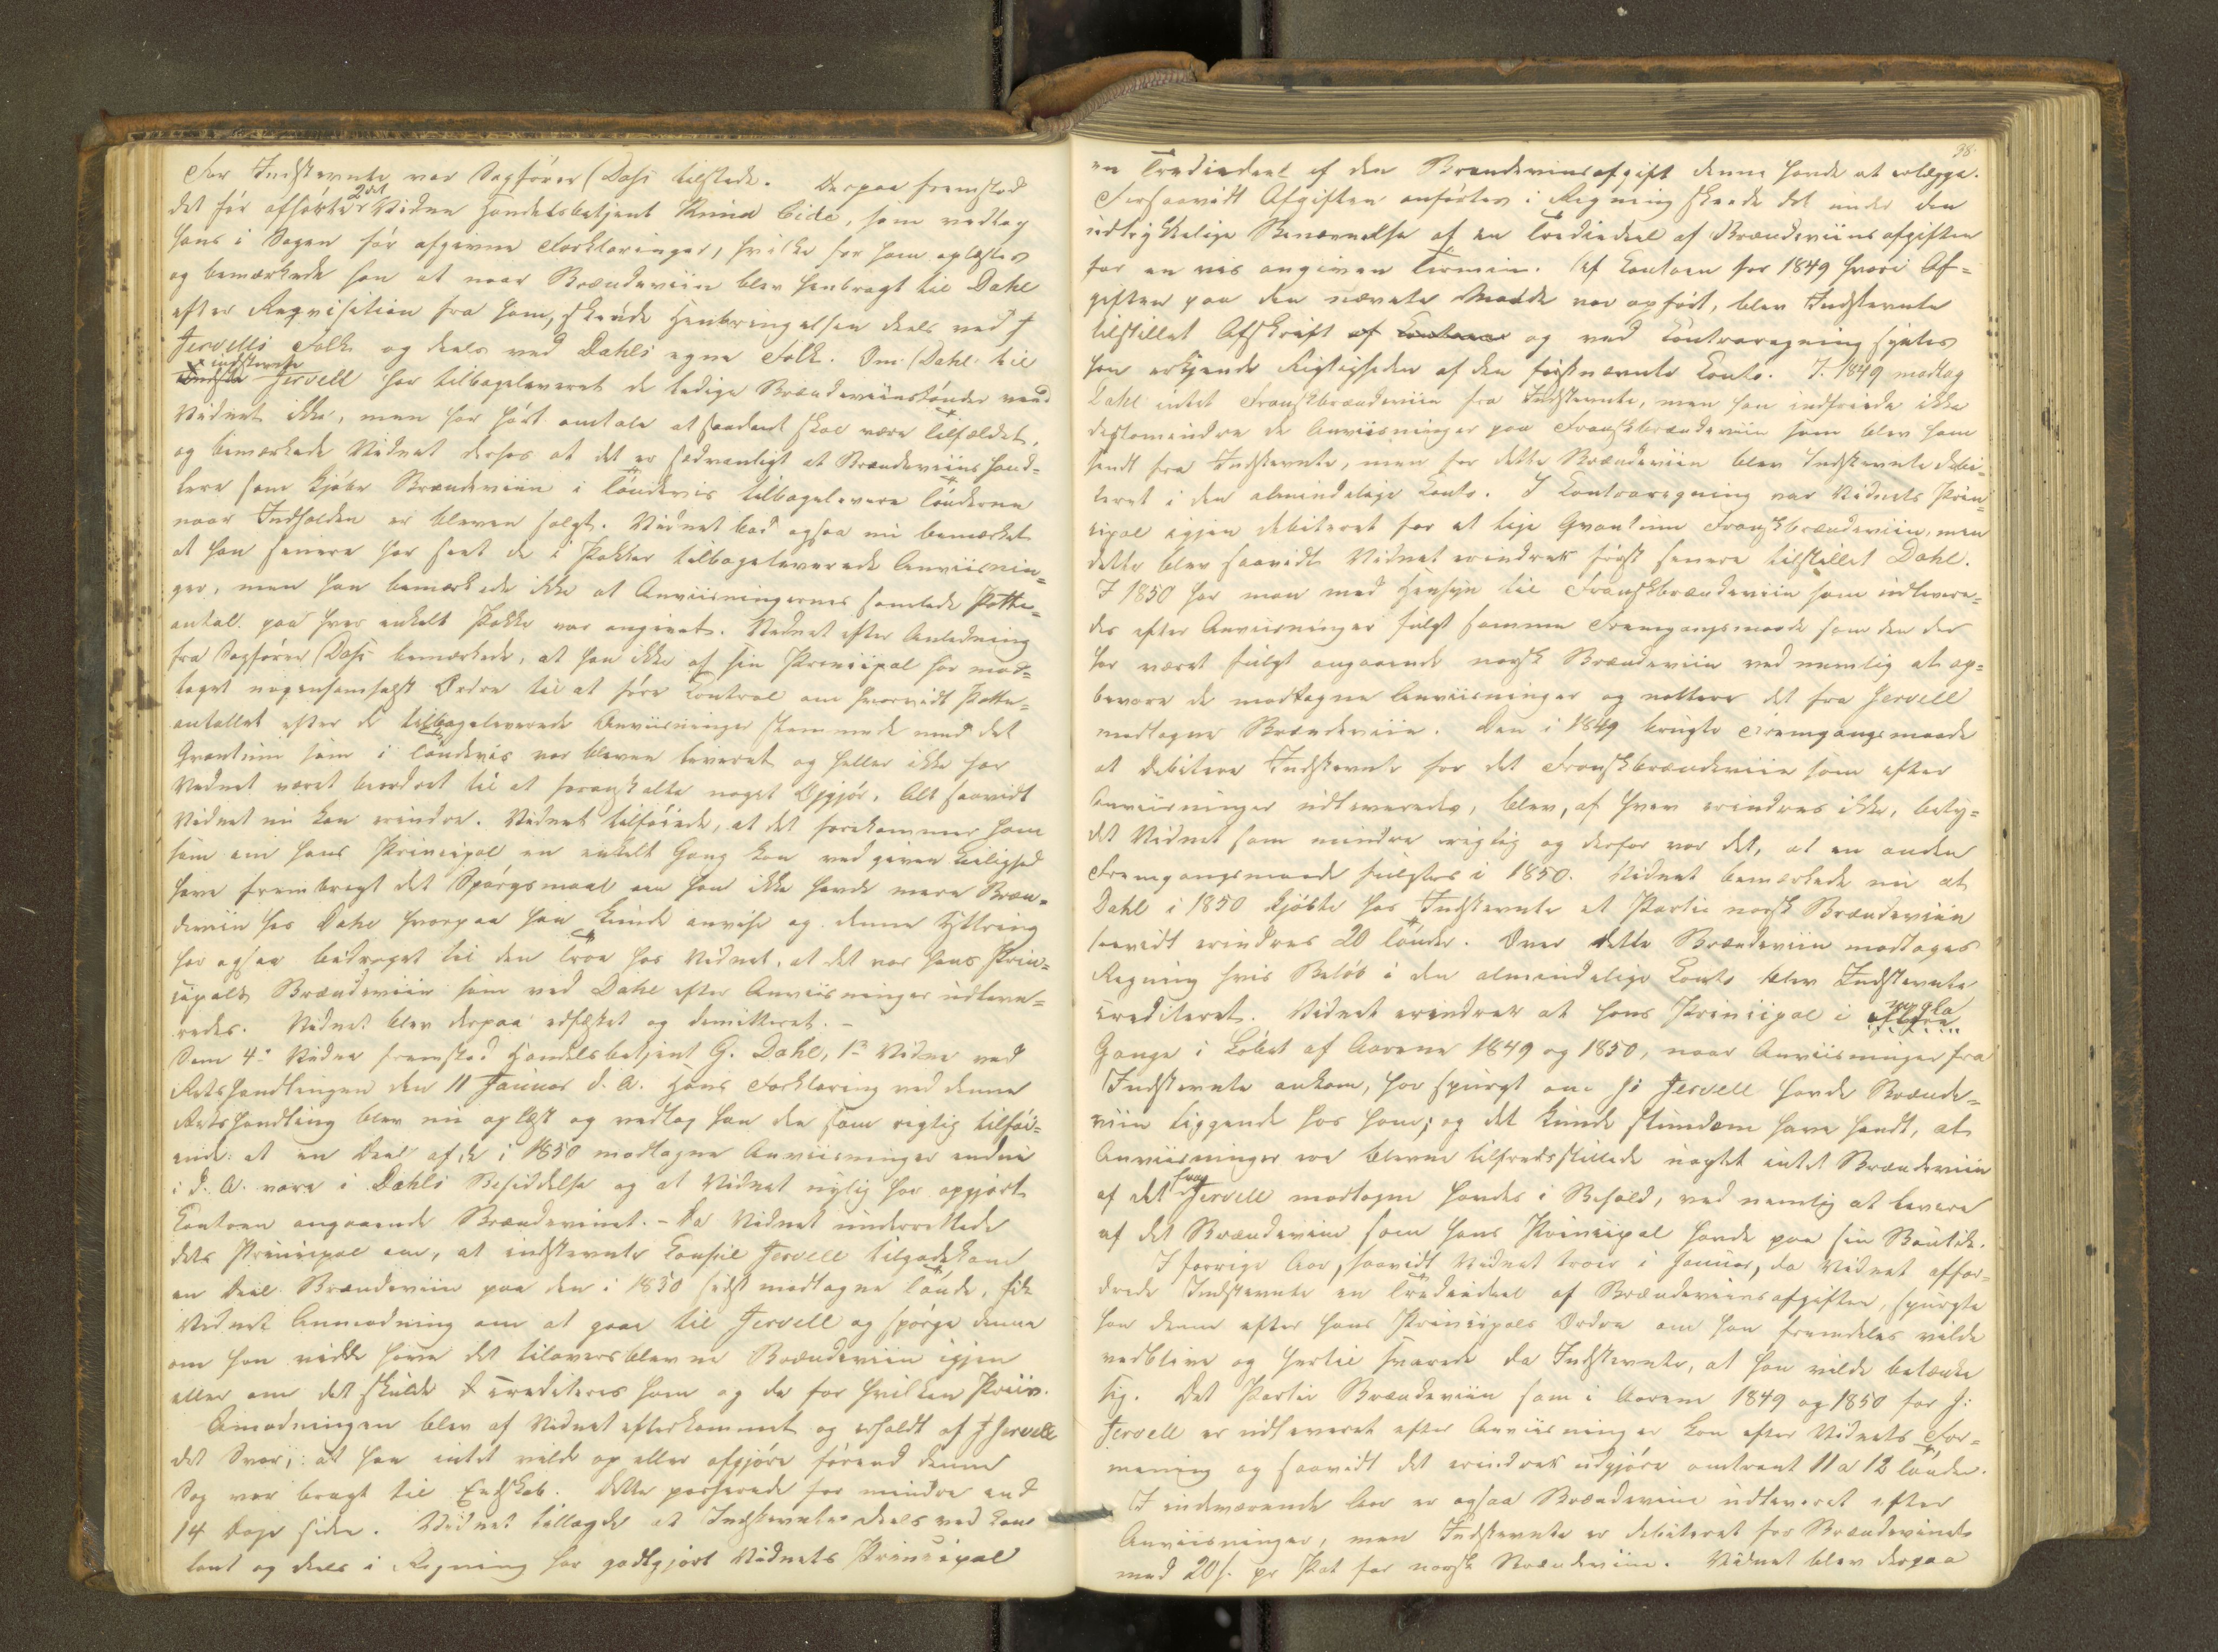 For Indstevnte var Sagfører Dahs tilstede. Derpaa fremstod
det før afhørte 2det Vidne Handelsbetjent Knud Eide, som vedtog
hans i Sagen før afgivne Forklaringer, hvilke for ham oplæstes
og bemærkede han at naar Brændeviin blev henbragt til Dahl
efter Reqvisition fra ham, skeede Henbringelsen deels ved J
Jervells Folk og deels ved Dahls egne Folk. Om Dahl til
indstevnte Jervell har tilbageleveret de ledige Brændeviinstønder veed
Vidnet ikke, men har hørt omtale at saadant skal være Tilfældet,
og bemærkede Vidnet derhos at det er sædvanligt at Brændeviins Hand=
lere som kjøbe Brændeviin i Tøndeviis tilbagelevere Tønderne
naar Indholdet er bleven solgt. Vidnet bad ogsaa nu bemærket
at han senere har seet de i Pakker tilbageleverede Anviisnin=
ger, men han bemærkede ikke at Anviisningernes samlede Potte=
antal paa hver enkelt Pakke var angivet. Vidnet efter Anledning
fra Sagfører Dahs bemærkede, at han ikke af sin Principal har mod=
taget nogensomhelst Ordre til at føre Control om hvorvidt Potte=
antallet efter de tilbageleverede Anviisninger stemmede med det
Qvantum som i Tøndeviis var bleven leveret og heller ikke har
Vidnet været beordret til at foranstalte noget Opgjør, Alt saavidt
Vidnet nu kan erindre. Vidnet tilføiede, at det forekommer ham
som om hans Principal en enkelt Gang kan ved given Leilighed
have frembragt det Spørgsmaal om han ikke havde mere Bræn=
deviin hos Dahl hvorpaa han kunde anvise og denne Yttring
har ogsaa bidraget til den Troe hos Vidnet, at det var hans Prin=
cipals Brændeviin som ved Dahl efter Anviisninger udleve=
redes. Vidnet blev derpaa edfæstet og demitteret. –
Som 4de Vidne fremstod Handelsbetjent G. Dahl, 1ste Vidne ved
Retshandlingen den 11 Januar d. A. Hans Forklaring ved denne
Retshandling blev nu oplæst og vedtog han den som rigtig tilføi=
ende: at en Deel af de i 1850 modtagne Anviisninger endnu
i d. A. vare i Dahls Besiddelse og at Vidnet nylig har opgjort
Contoen angaaende Brændevinet. – Da Vidnet underrettede
dets Principal om, at indstevnte Consul Jervell tilgodekom
en Deel Brændeviin paa den i 1850 sidst modtagne Tønde, fik
Vidnet Anmodning om at gaae til Jervell og spørge denne
om han vilde have det tiloversblevne Brændeviin igjen
eller om det skulde crediteres ham og da for hvilken Priis.
Anmodningen blev af Vidnet efterkommet og erholdt af J Jervell
det Svar, at han intet vilde op eller afgjøre førend denne
Sag var bragt til Endskab. Dette passerede for mindre end
14 Dage siden. Vidnet tillagde at Indstevnte deels ved Con
tant og deels i Regning har godtgjort Vidnets Principal
98
en Trediedeel af den Brændeviinsafgift denne havde at erlægge.
Forsaavidt Afgiften anførtes i Regning skeede det under den
udtrykkelige Benævnelse af en Trediedeel af Brændeviinsafgiften
for en vis angiven Termin. Af Contoen for 1849 hvori Af=
giften paa den nævnte Maade var opført, blev Indstevnte
tilstillet Afskrift af Contoen og ved Contraregning syntes
han erkjende Rigtigheden af den førstnævnte Conto. I 1849 modtog
Dahl intet Franskbrændeviin fra Indstevnte, men han indfriede ikke
destomindre de Anviisninger paa Franskbrændeviin som blev ham
sendt fra Indstevnte, men for dette Brændeviin blev Indstevnte debi=
teret i den almindelige Conto. I Contraregning var Vidnets Prin=
cipal igjen debiteret for et lige Qvantum Franskbrændeviin, men
dette blev saavidt Vidnet erindrer først senere tilstillet Dahl.
I 1850 har man med Hensyn til Franskbrændeviin som udlevere=
des efter Anviisninger fulgt samme Fremgangsmaade som den der
har været fulgt angaaende norsk Brændeviin ved nemlig at op=
bevare de modtagne Anviisninger og nottere det fra Jervell
modtagne Brændeviin. Den i 1849 brugte Fremgangsmaade
at debitere Indstevnte for det Franskbrændeviin som efter
Anviisninger udleveredes, blev, af hvem erindres ikke, bety=
det Vidnet som mindre rigtig og derfor var det, at en anden
Fremgangsmaade fulgtes i 1850. Vidnet bemærkede nu at
Dahl i 1850 kjøbte hos Indstevnte et Partie norsk Brændeviin
saavidt erindres 20 Tønder. Over dette Brændeviin modtoges
Regning hvis Beløb i den almindelige Conto blev Indstevnte
crediteret. Vidnet erindrer at hans Principal i nogle
Gange i Løbet af Aarene 1849 og 1850, naar Anviisninger fra
Indstevnte ankom, har spurgt om J: Jervell havde Brænde=
viin liggende hos ham; og det kunde stundom have hendt, at
Anviisninger ere blevne tilfredsstillede uagtet intet Brændeviin
af det fra Jervell modtagne havdes i Behold, ved nemlig at levere
af det Brændeviin som hans Principal havde paa sin Boutik.
I forrige Aar, saavidt Vidnet troer i Januar, da Vidnet affor=
drede Indstevnte en Trediedeel af Brændeviinsafgiften, spurgte
han denne efter hans Principals Ordre om han fremdeles vilde
vedblive og hertil svarede da Indstevnte, at han vilde betænke
sig. Det Partie Brændeviin som i Aarene 1849 og 1850 for J:
Jervell er udleveret efter Anviisninger kan efter Vidnets For=
mening og saavidt det erindrer udgjøre omtrent 11 a 12 Tønder.
I indeværende Aar er ogsaa Brændeviin udleveret efter
Anviisninger, men Indstevnte er debiteret for Brændevinet
med 20 s. pr Pot for norsk Brændeviin. Vidnet blev derpaa